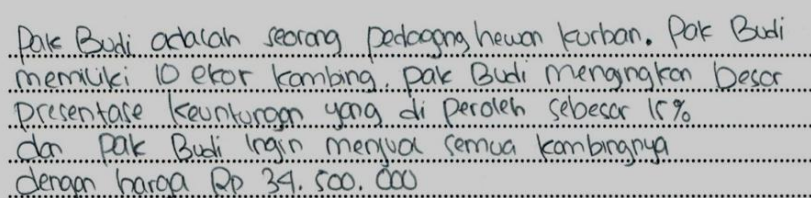 Pak Budi adalah seorang pedagang hewan kurban. Pak Budi
memiliki 10 ekor kambing. Pak Budi menginginkan besar
presentase keuntungan yang di peroleh sebesar 15%
dan Pak Budi ingin menjual semua kambingnya
dengan harga Rp 34.500.000